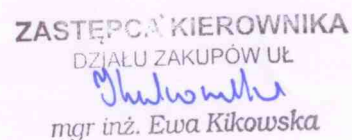 ZASTĘPCA KIEROWNIKA
DZIAŁU ZAKUPÓW UŁ
mgr inż. Ewa Kikowska